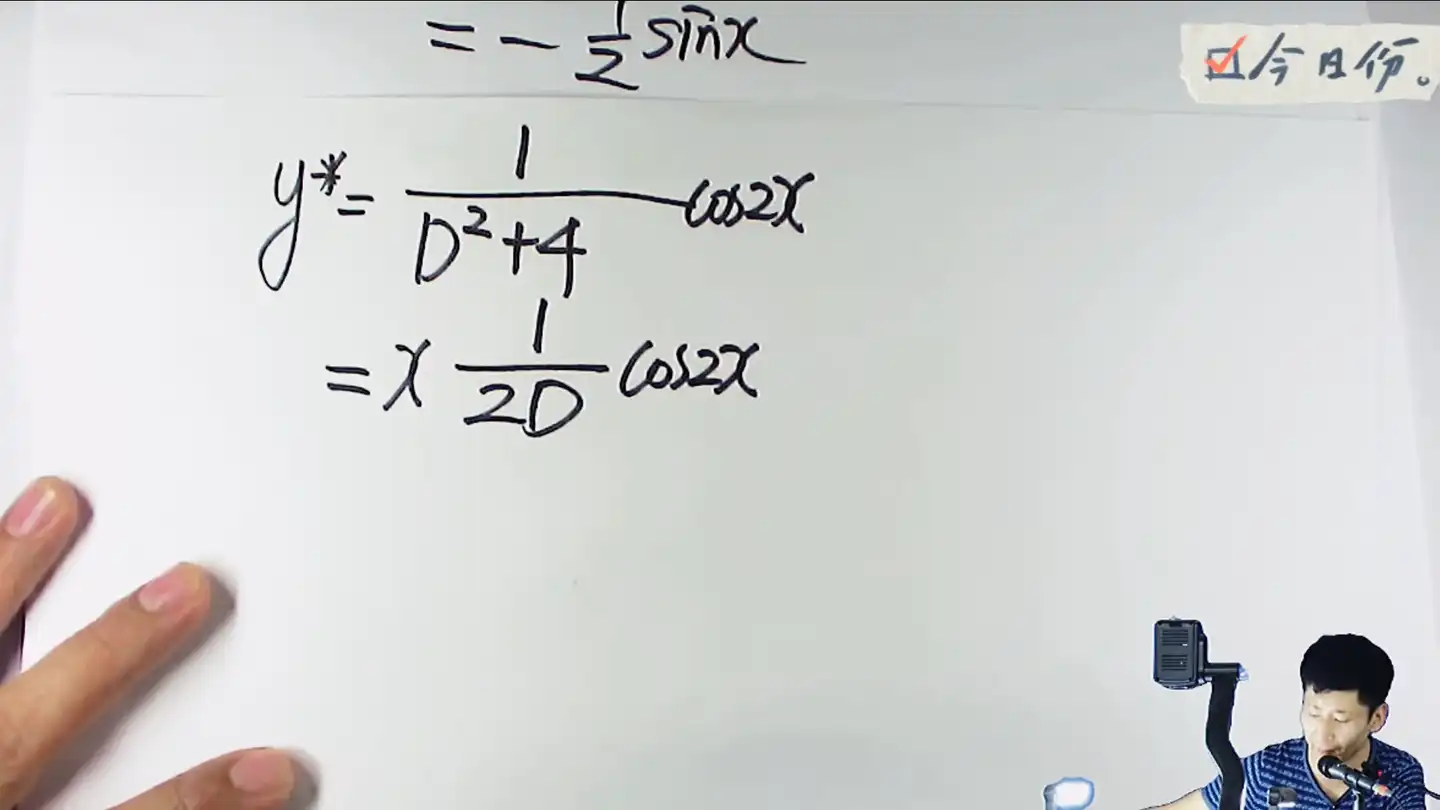 = - 1/2 sinx
今日份。
y* = 1/(D²+4) cos2x
= x 1/(2D) cos2x